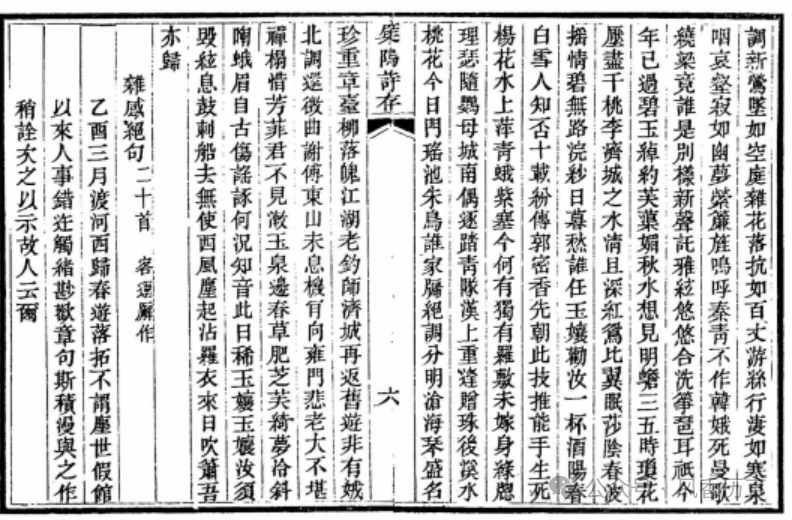 調新鶯墜如空庭雜花落抗如百丈游絲行淒如寒泉
咽哀壑寂如幽夢縈簾旌嗚呼秦青不作韓娥死曼歌
繞梁竟誰是別樣新聲託雅絃悠悠合洗箏琶耳祇今
年已過碧玉綽約芙蕖媚秋水想見明蟾三五時瓊花
壓盡千桃李濟城之水清且深紅鴛比翼眠莎陰春波
搖情碧無路浣紗日暮愁誰任玉孃勸汝一杯酒陽春
白雪人知否十載紛傳郭密香先朝此技推能手生死
楊花水上萍青蛾紫塞今何有獨有羅敷未嫁身絲牕
理瑟隨鸚母城南偶逐踏青隊漢上重逢贈珠後溪水
桃花今日門瑤池朱鳥誰家牖絕調分明滄海琴盛名
粊隖詩存
六
珍重章臺柳落魄江湖老釣師濟城再返舊遊非有娀
北調還微曲謝傅東山未息機肎向雍門悲老大不堪
禪榻惜芳菲君不見漱玉泉邊春草肥芝芙綺夢冷斜
陽蛾眉自古傷謠諑何況知音此日稀玉孃玉孃汝須
毀絃息鼓刺船去無使西風塵起沾羅衣來日吹簫吾
亦歸
雜感絕句二十首 客邅廬作
乙酉三月渡河西歸春遊落拓不謂塵世假館
以來人事錯迕觸緒斟歡章句斯積漫與之作
稍詮次之以示故人云爾
公众号